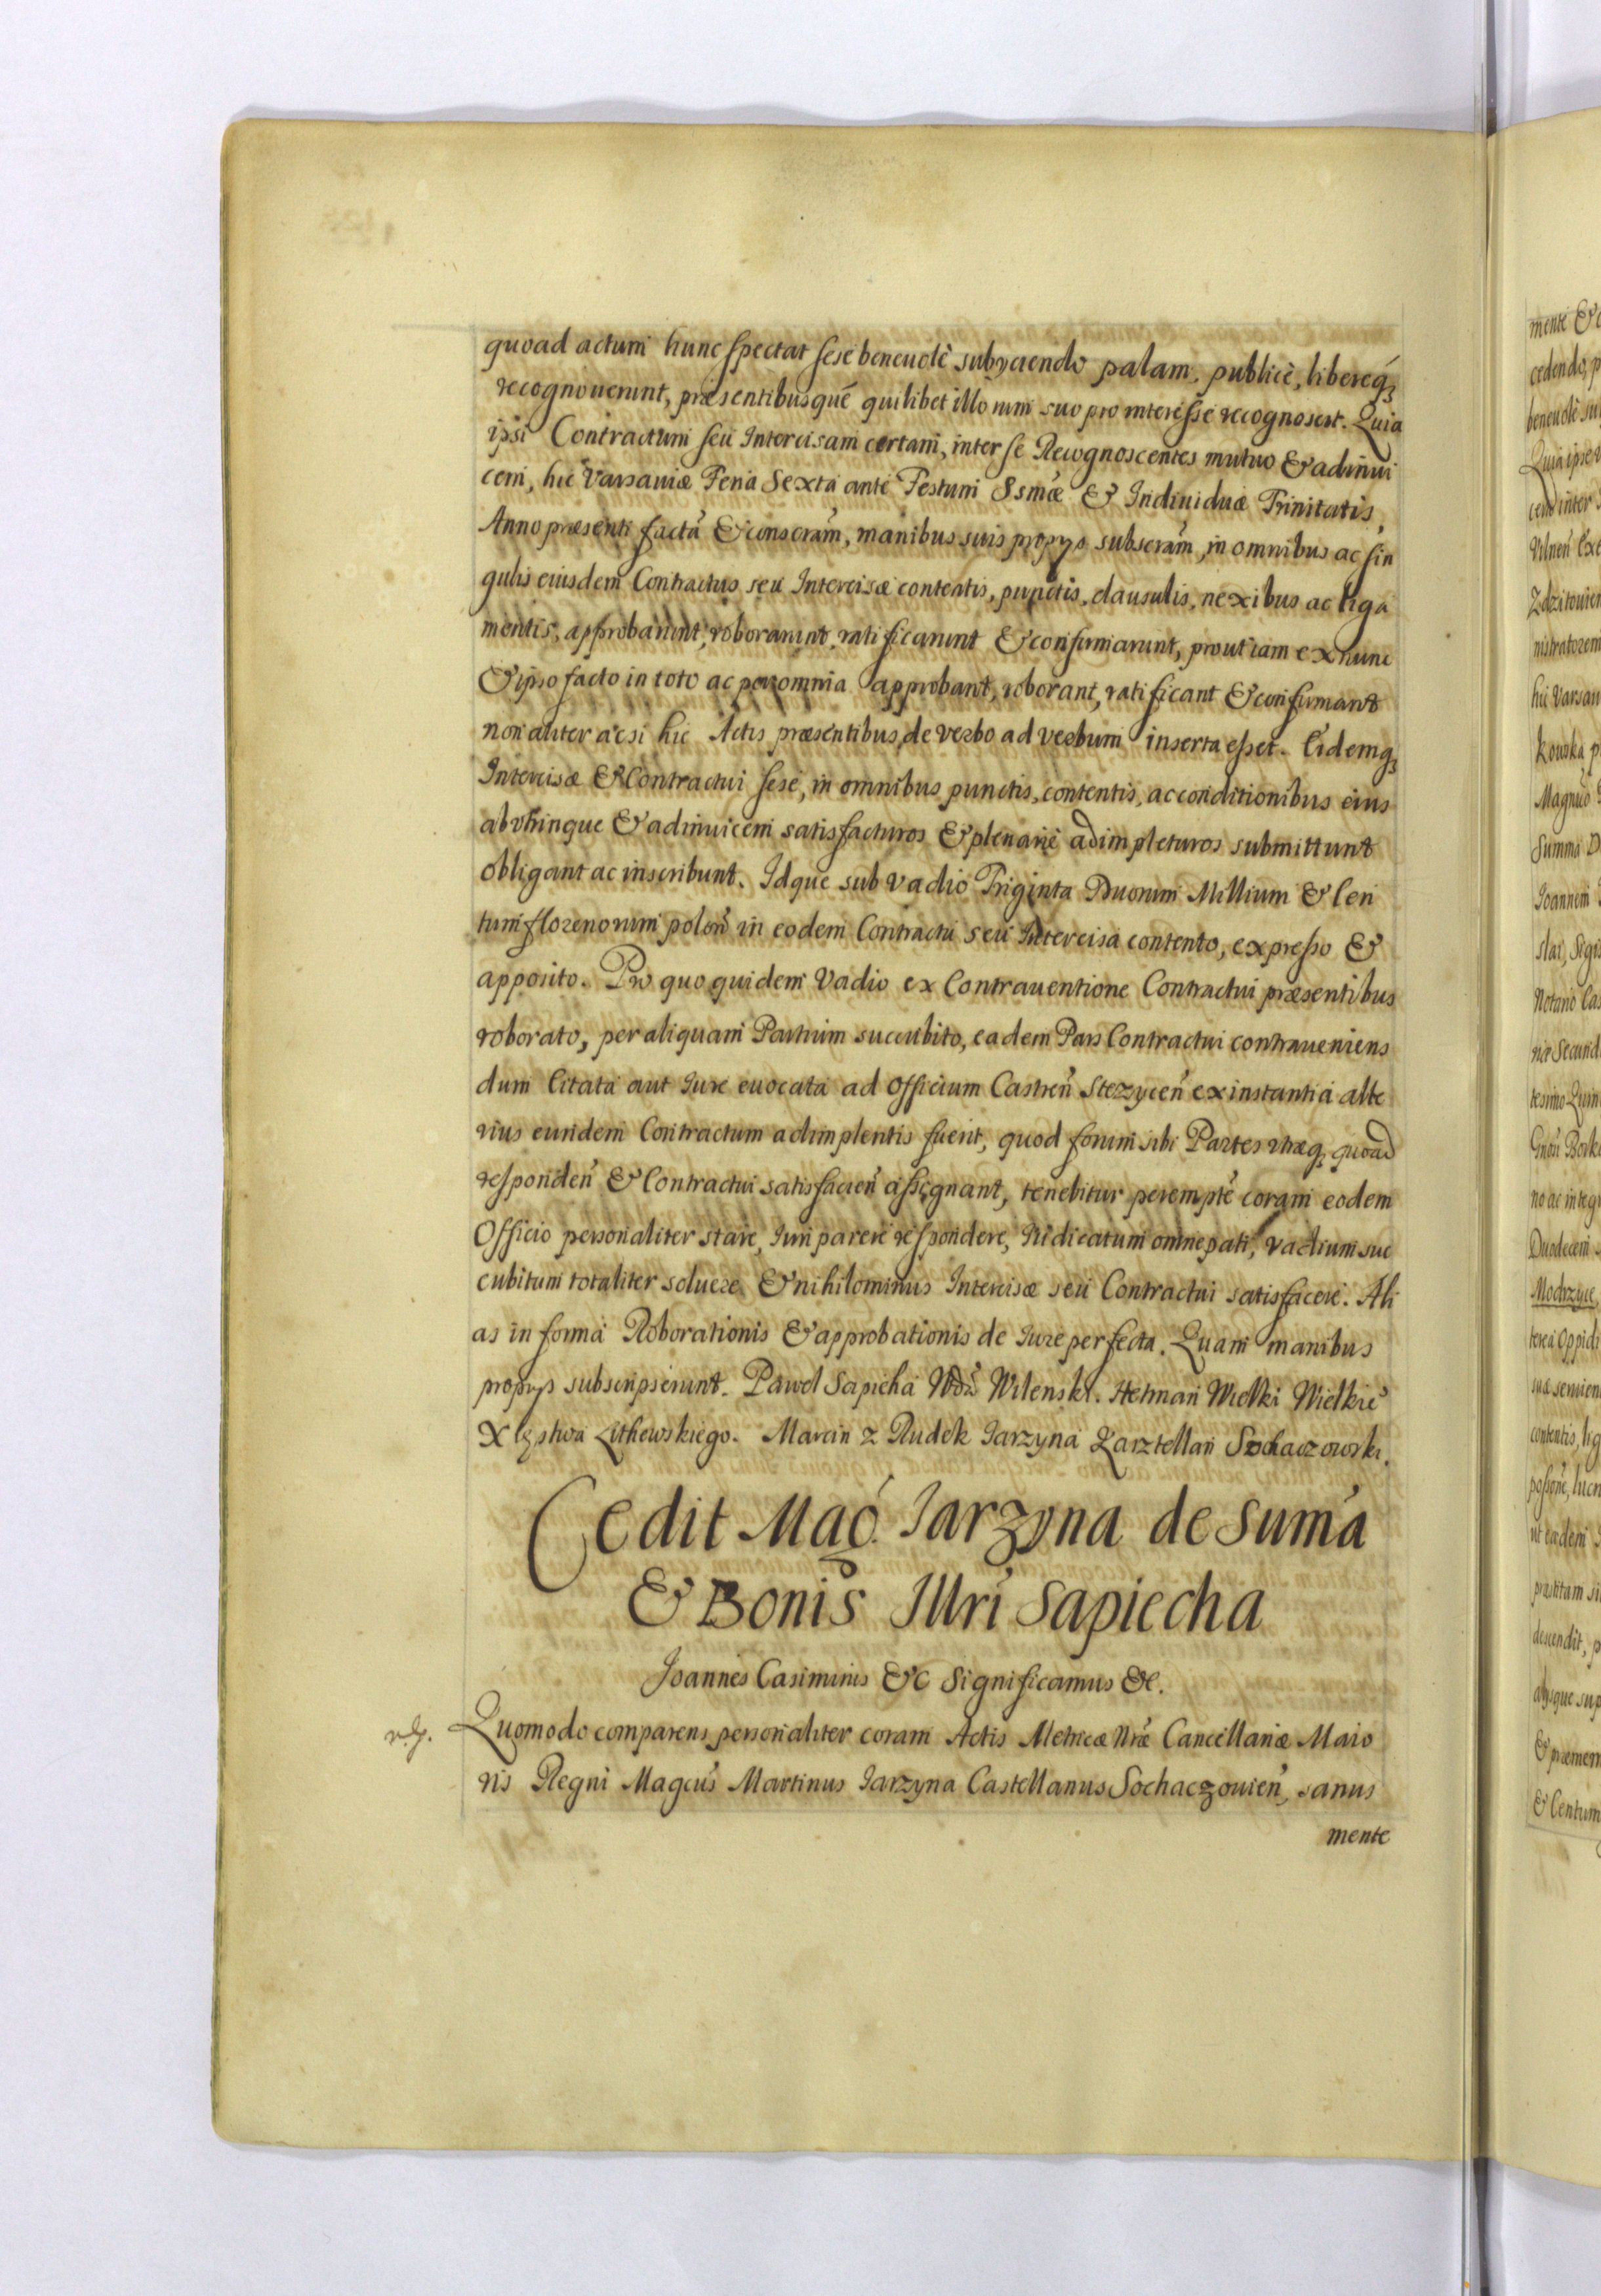 quoad actum hunc spectat sese beneuolè subyciendo palam, publicè, libereq́ꝫ
recognouerunt, præsentibusquè quilibet illorum suo pro interesse recognoscit. Quia
ipsi Contractum seu Intercisam certam, inter se Recognoscentes mutuo & adinui
cem, hic Varsauiæ Feria Sexta ante Festum Ssmæ & Indiuiduæ Trinitatis,
Anno præsenti factã & conscrãm, manibus suis proprys subscrãm, in omnibus ac sin
gulis eiusdem Contractus seu Intercisæ contentis, punctis, clausulis, nexibus ac liga
mentis, approbarunt, roborarunt, ratificarunt & confirmarunt, prout iam ex nunc
& ipso facto in toto ac per omnia approbant, roborant, ratificant & confirmant
non aliter ac si hic Actis præsentibus, de verbo ad verbum inserta esset. Eidemqꝫ
Intercisæ & Contractui sese, in omnibus punctis, contentis, ac conditionibus eius
ab vtrinque & adinuicem satisfacturos & plenariè adimpleturos submittunt
obligant ac inscribunt. Idque sub vadio Triginta Duorum Millium & Cen
tum florenorum polon̄ in eodem Contractu seu Intercisa contento, expresso &
apposito. Pro quo quidem Vadio ex Contrauentione Contractui præsentibus
roborato, per aliquam Partium succubito, eadem Pars Contractui contraueniens
dum Citata aut Iure euocata ad Officium Castren̄ Stezycen̄ ex instantia alte
rius eundem Contractum adimplentis fuerit, quod forum sibi Partes vtræqꝫ quoad
responden̄ & Contractui satisfacien̄ assignant, tenebitur perempte᷃ coram eodem
Officio personaliter stare, Iuri parere respondere, Iudicatum omne pati, vadium suc
cubitum totaliter soluere & nihilominus Intercisæ seu Contractui satisfacere. Ali
as in forma Roborationis & approbationis de Iure perfecta. Quam manibus
proprys subscripserunt. Paweł Sapieha Wdã Wilenski. Hetman Wielki Wielkiè
Xięstwa Lithewskiego. Marcin z Rudek Iarzyna Karztellan Sochaczowski.
Cedit Mag̃. Iarzyna de Suma
& Bonis Illri Sapiecha
Ioannes Casimirus &c Significamus &c.
Quomodo comparens personaliter coram Actis Metricæ Nræ Cancellariæ Maio
ris Regni Magcus Martinus Iarzyna Castellanus Sochaczouien̄, sanus
mente